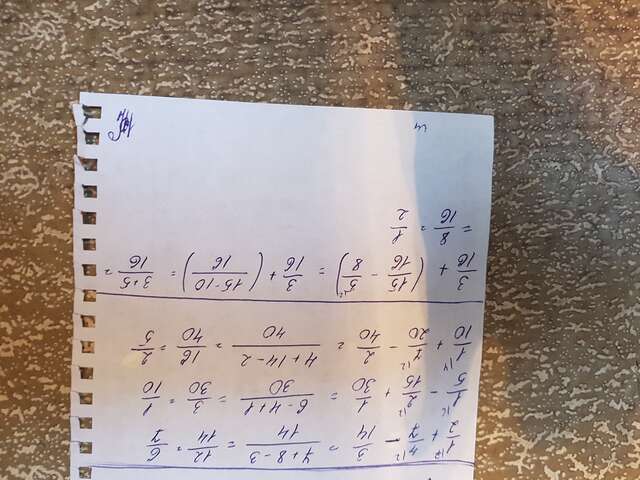 1/2 + 4/7 - 3/14 = 7+8-3/14 = 12/14 = 6/7
1/5 - 2/15 + 1/30 = 6-4+1/30 = 3/30 = 1/10
1/10 + 7/20 - 2/40 = 4+14-2/40 = 16/40 = 2/5
3/16 + (15/16 - 5/8) = 3/16 + (15-10/16) = 3+5/16 =
= 8/16 = 1/2